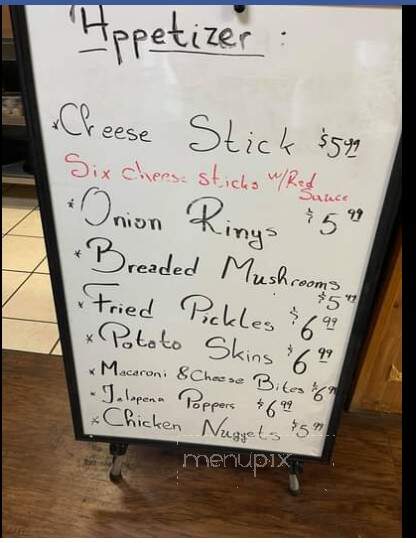 Appetizer :
*Cheese Stick $5.99
Six cheese sticks w/Red
Sauce
*Onion Rings $5.99
*Breaded Mushrooms
$5.99
*Fried Pickles $6.99
*Potato Skins $6.99
*Macaroni & Cheese Bites $6.99
*Jalapena Poppers $6.99
*Chicken Nuggets $5.99
menupix